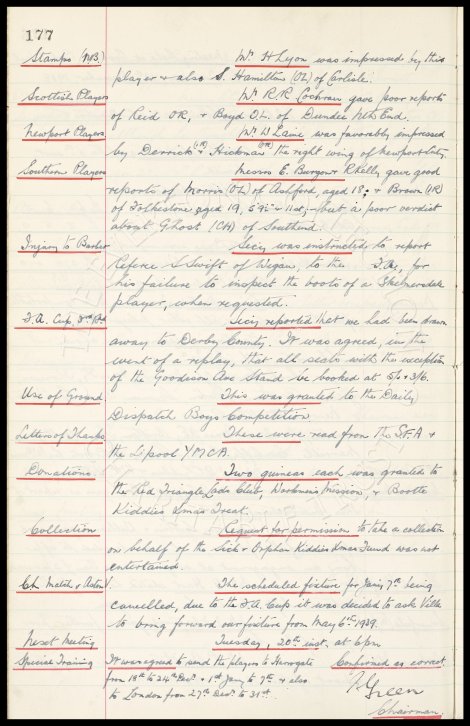 177
Stamps (Nº3) Mr. H Lyon was impressed by this
player & also S. Hamilton (OL) of Carlisle.
Scottish Players Mr. R.R. Cochran gave poor reports
of Reid OR, & Boyd O.L. of Dundee Nth End.
Newport Players Mr. W Laine was favorably impressed
by Derrick (IR) & Hickman (OR) the right wing of Newport City.
Southern Players Messrs E. Burgon & R Kelly gave good
reports of Morris (OL) of Ashford, aged 18; & Brown (IR)
of Folkestone aged 19, 5'9½" - 11st; but a poor verdict
about Ghost (CH) of Southend.
Injury to Barber Secy was instructed to report
Referee S Swift of Wigan, to the F.A., for
his failure to inspect the boots of a Skelmersdale
player, when requested.
F.A. Cup, 3rd Rd Secy reported that we had been drawn
away to Derby County. It was agreed, in the
event of a replay, that all seats with the exception
of the Goodison Ave Stand be booked at 5/- & 3/6.
Use of Ground This was granted to the Daily
Dispatch Boys Competition.
Letters of Thanks These were read from The St. A &
the L'pool YMCA.
Donations Two guineas each was granted to
the Red Triangle Lads Club, Workmens Mission, & Bootle
Kiddies Xmas Treat.
Collection Request for permission to take a collection
on behalf of the Sick & Orphan Kiddies Xmas Fund was not
entertained.
Ch. Match v Aston V. The scheduled fixture for Jany 7th being
cancelled, due to the F.A. Cup it was decided to ask Villa
to bring forward our fixture from May 6th 1939.
Next Meeting Tuesday, 20th inst. at 6pm
Special Training It was agreed to send the players to Harrogate Confirmed as correct
from 18th to 24th Decr. & 1st Jany to 7th & also
to London from 27th Decr. to 31st.
Green
Chairman.